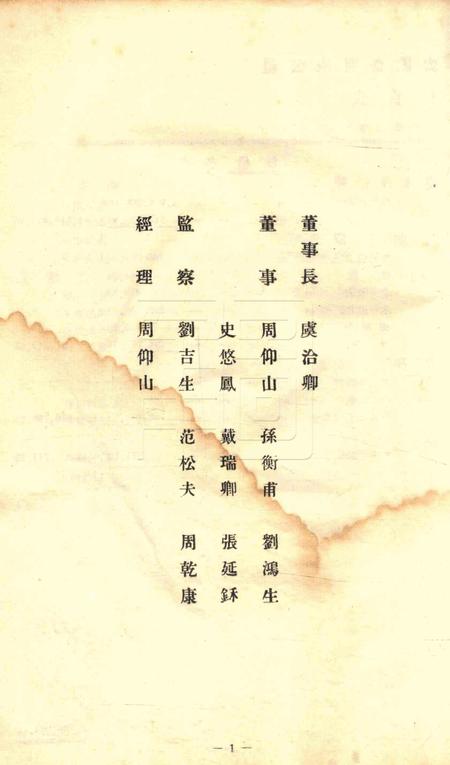 董事長 虞洽卿
董事 周仰山 孫衡甫 劉鴻生
史悠鳳 戴瑞卿 張延鉌
監察 劉吉生 范松夫 周乾康
經理 周仰山
— 1 —